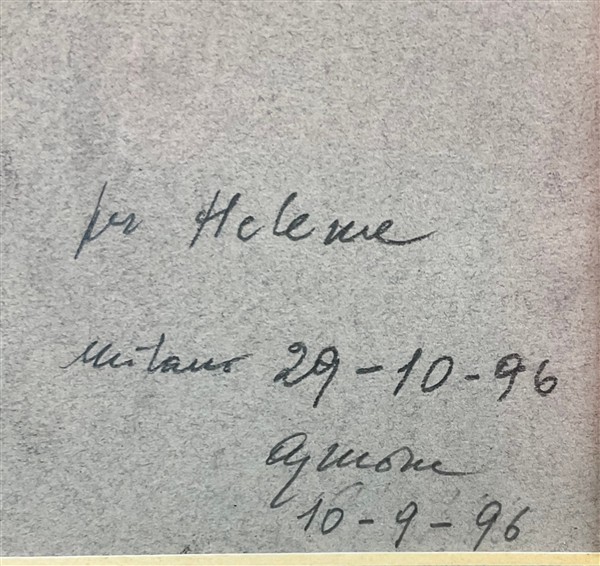 per Helene
Milano 29-10-96
Aymone
10-9-96